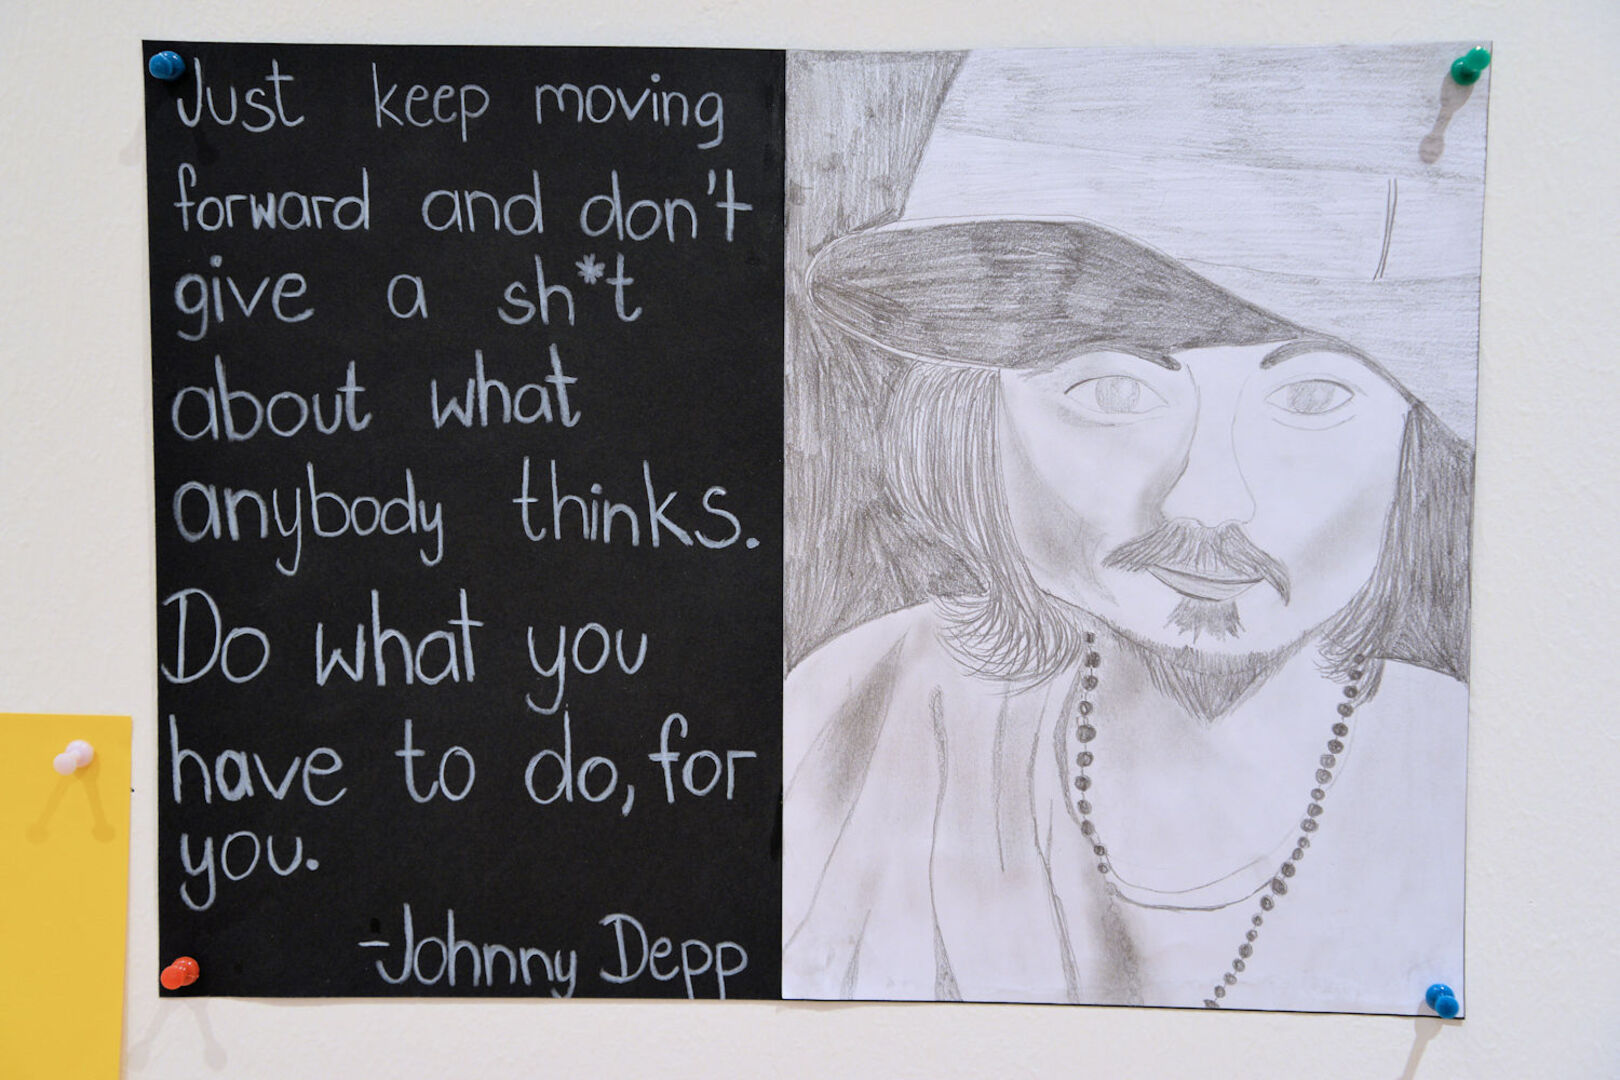 Just keep moving
forward and don't
give a sh*t
about what
anybody thinks.
Do what you
have to do, for
you.
-Johnny Depp